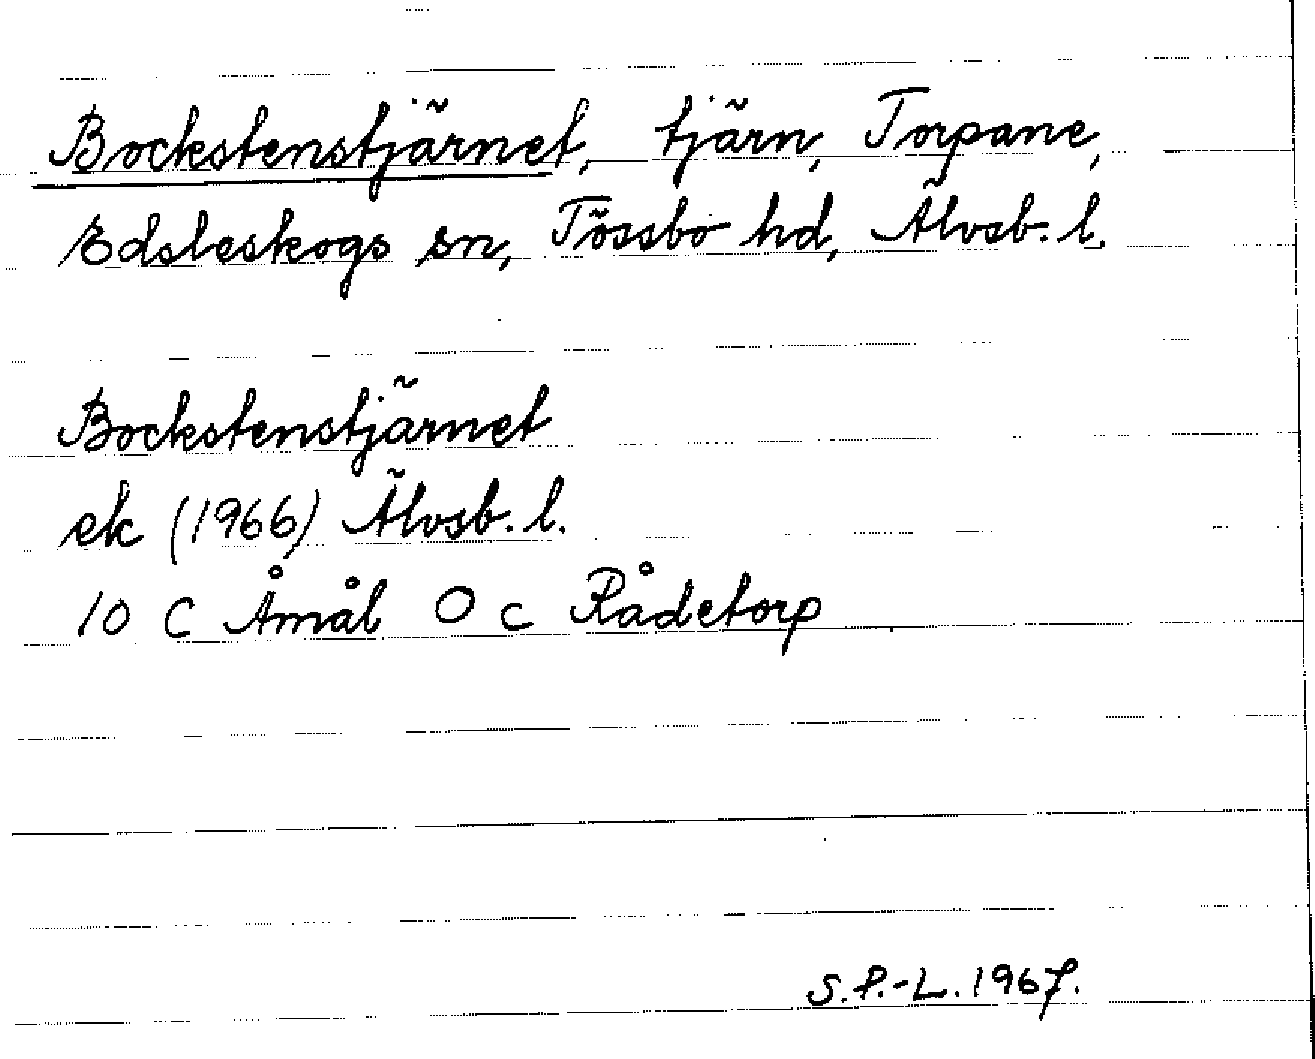 Bockstenstjärnet, tjärn, Torpane,
Edsleskogs sn, Tössbo hd, Älvsb. l.
Bockstenstjärnet
ek (1966) Älvsb. l.
10 C Åmål O c Rådetorp
S.P.-L. 1967.